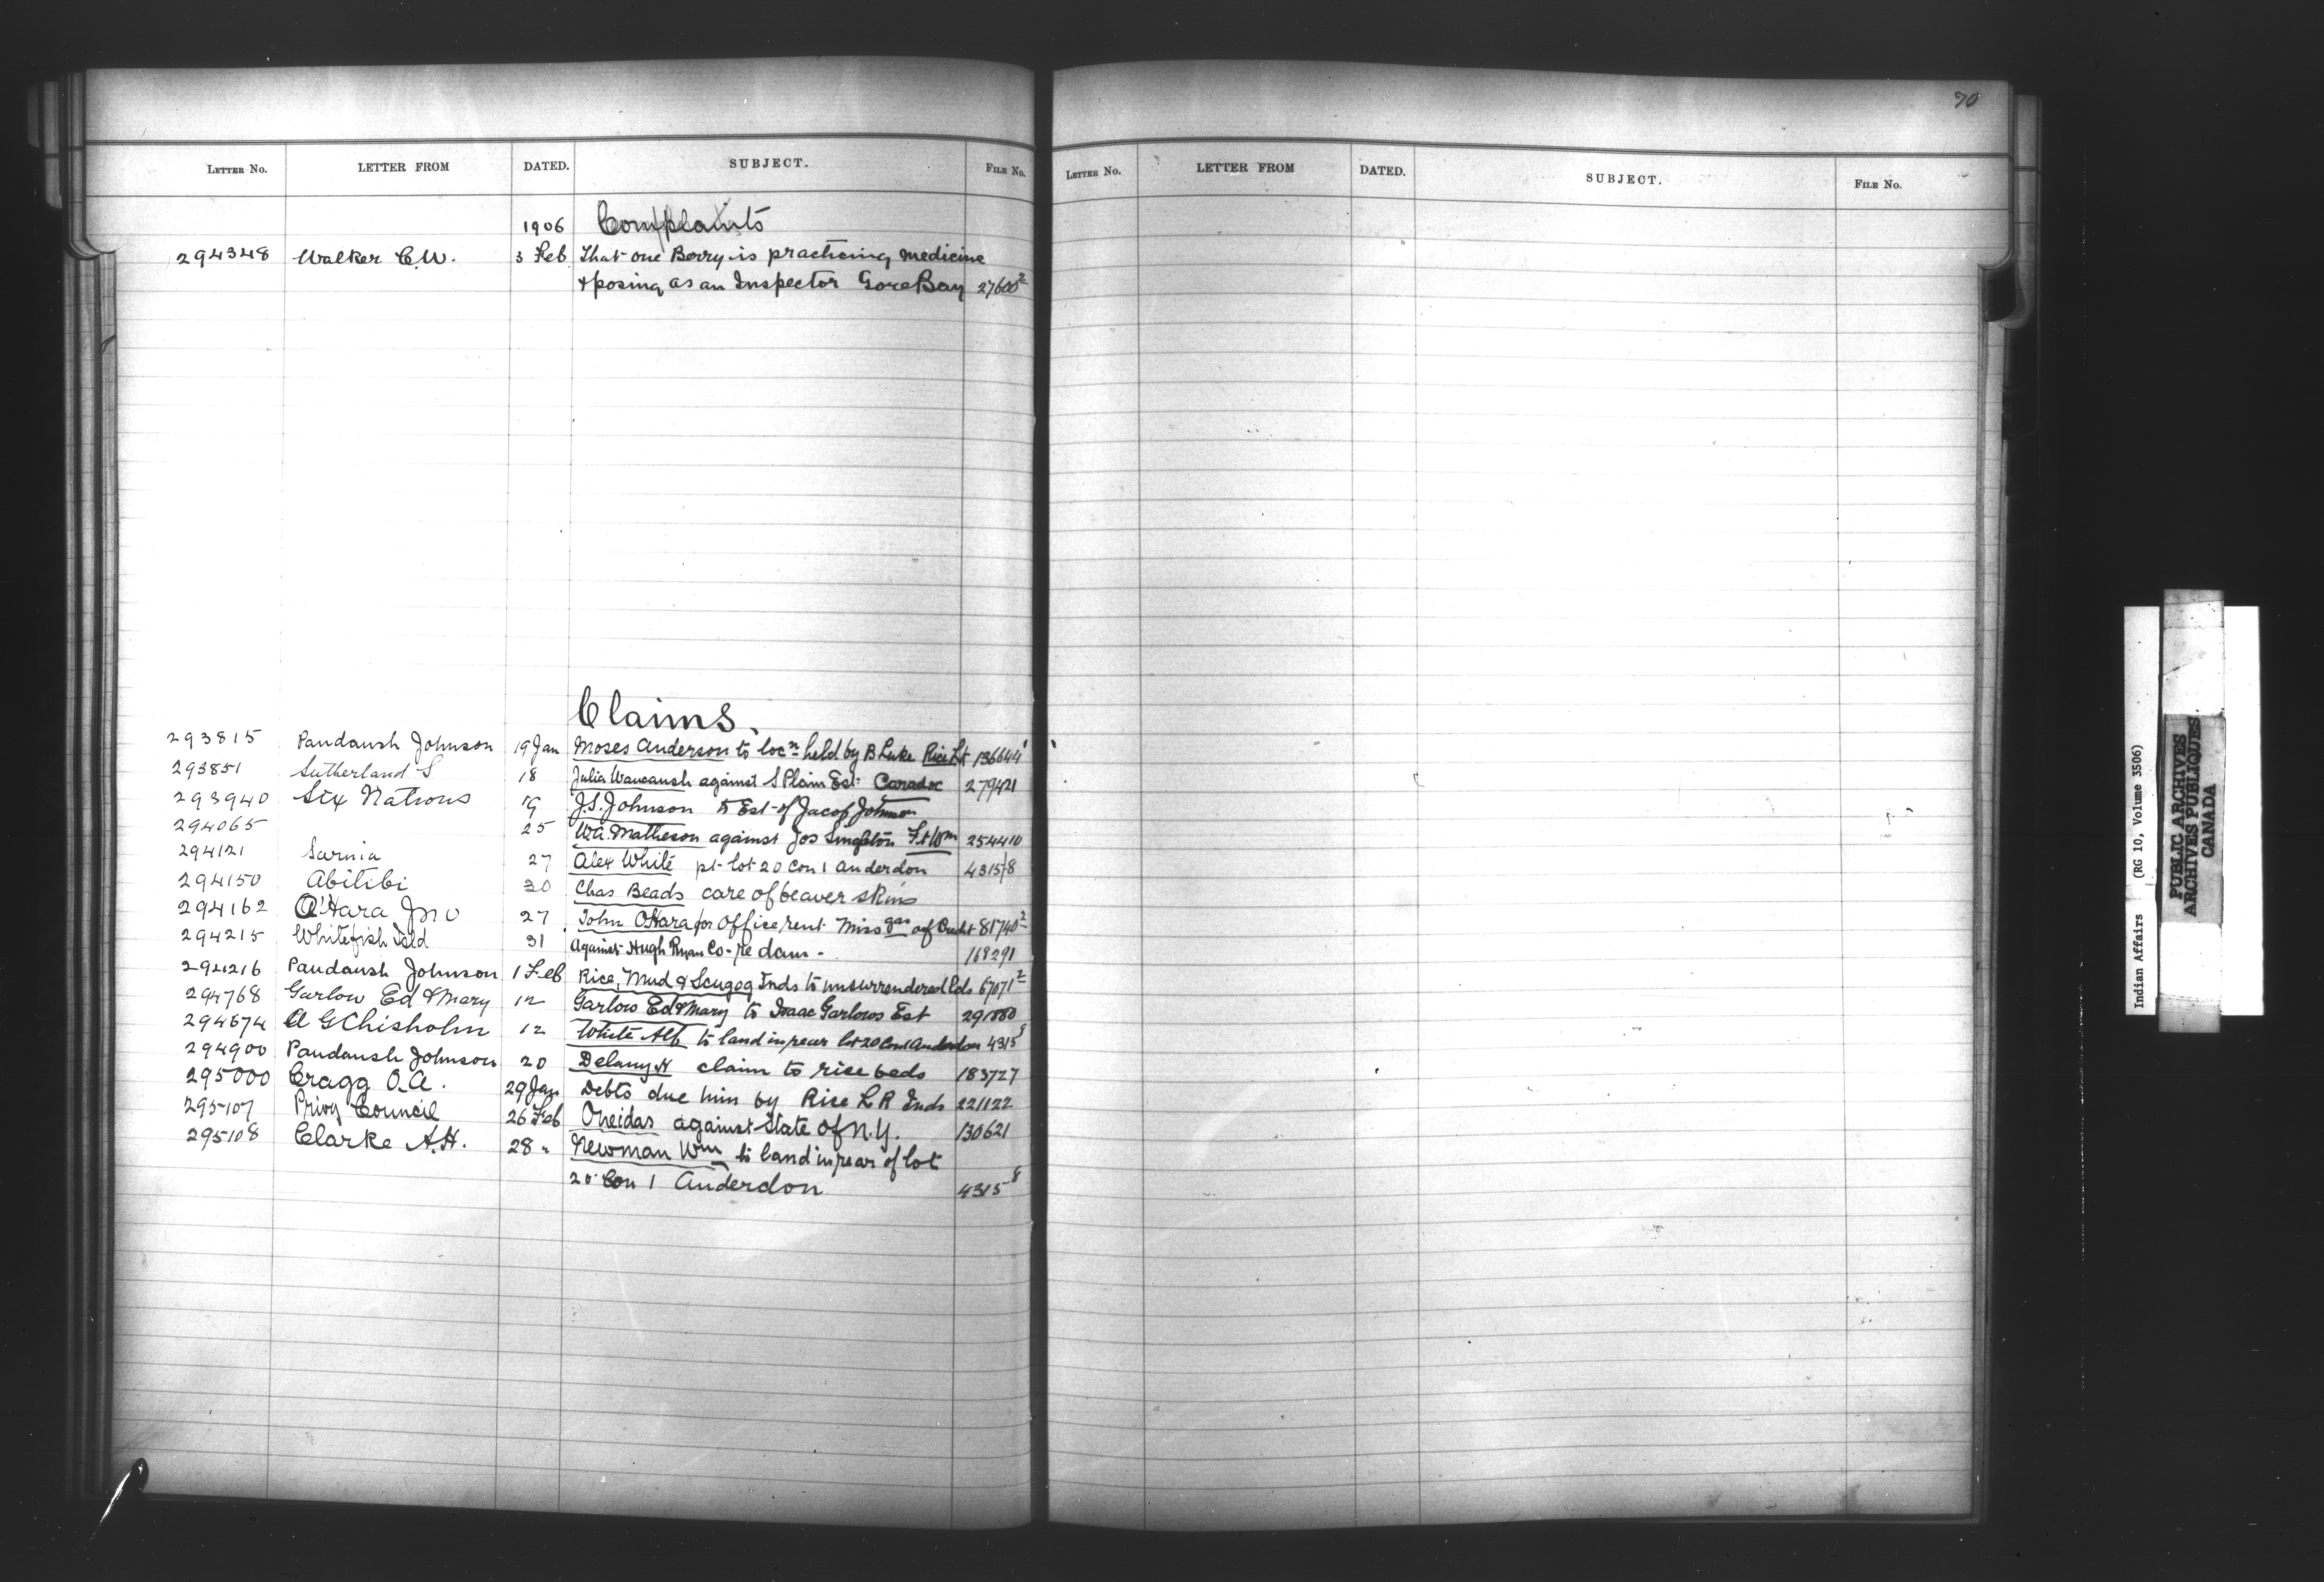 70
LETTER No. LETTER FROM DATED. SUBJECT. FILE No.
LETTER No. LETTER FROM DATED. SUBJECT. FILE No.
1906 Complaints
294348 Walker C.W. 3 Feb That one Berry is practicing medicine
& posing as an Inspector Gore Bay 27600²
Claims.
293815 Paudaush Johnson 19 Jan Moses Anderson to locn held by B Luke Rice Lk 136644¹
293851 Sutherland S 18 Julia Waucaush against S Plain Est. Caradoc 279421
293940 Six Nations 19 J.S. Johnson to Est of Jacob Johnson
294065 25 W.A. Matheson against Jos Singleton Ft Wm 254410
294121 Sarnia 27 Alex White pt lot 20 Con 1 Anderdon 4315/8
294150 Abitibi 30 Chas Beads care of beaver skins
294162 O'Hara Jno 27 John O'Hara for office rent Missgas of Credit 81740²
294215 Whitefish Isld 31 Against Hugh Ryan Co. re dam. 168291
294216 Paudaush Johnson 1 Feb Rice, Mud & Scugog Inds to unsurrendered lds 67071²
294768 Garlow Ed & Mary 12 Garlow Ed & Mary to Isaac Garlows Est 291880
294674 A G Chisholm 12 White Alf to land in rear lot 20 Con 1 Anderdon 4315⁸
294900 Paudaush Johnson 20 Delany N claim to rice beds 183727
295000 Cragg O.A. 29 Jan Debts due him by Rice L R Inds 221122
295107 Privy Council 26 Feb Oneidas against State of N.Y. 130621
295108 Clarke A.H. 28 " Newman Wm to land in rear of lot
20 Con 1 Anderdon 4315⁸
Indian Affairs (RG 10, Volume 3506)
PUBLIC ARCHIVES
ARCHIVES PUBLIQUES
CANADA